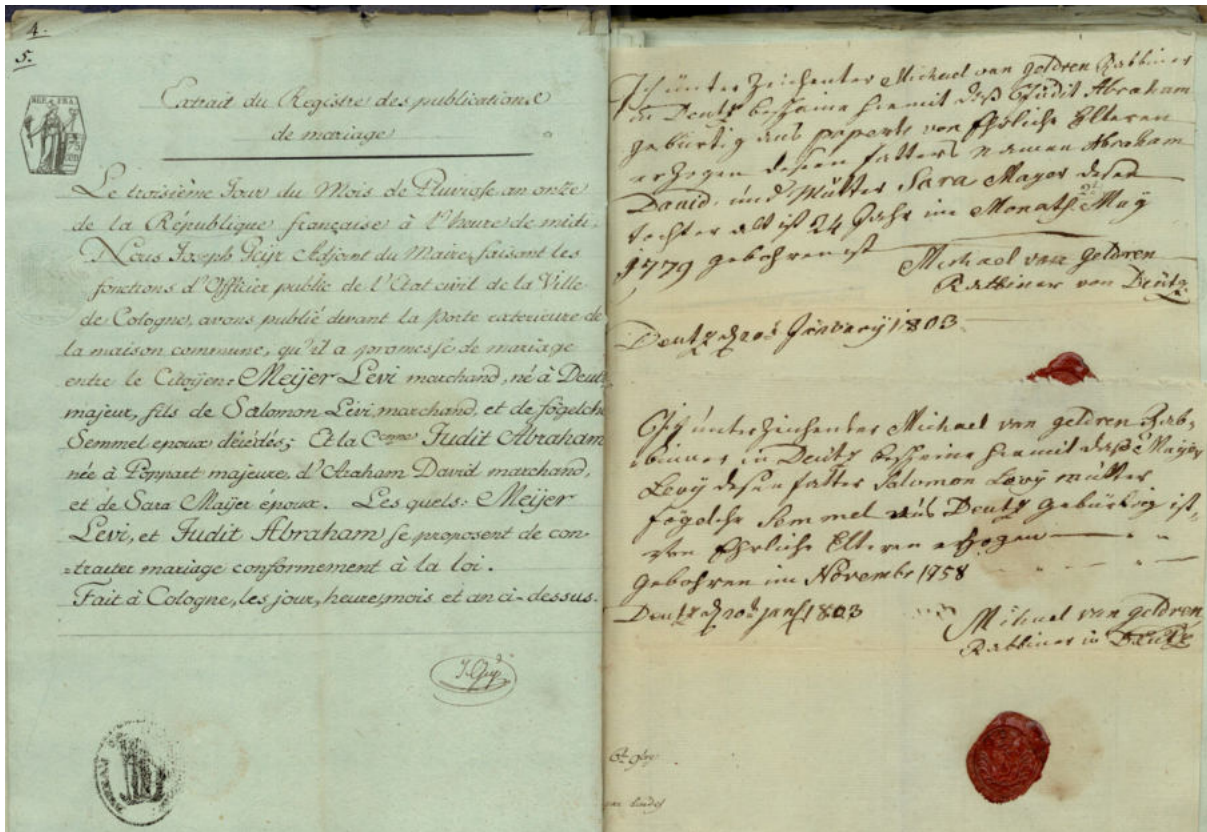 4.
5.
REP. FRA.
75
Extrait du Registre des publications
de mariage
Le troisième Jour du Mois de Pluviose an onze
de la République française à l'heure de midi.
Nous Joseph Geijr Adjoint du Maire, faisant les
fonctions d'Officier public de l'Etat civil de la Ville
de Cologne, avons publié devant la porte exterieure de
la maison commune, qu'il a promesse de mariage
entre le Citoÿen: Meijer Levi marchand, né à Deutz,
majeur, fils de Salomon Levi, marchand, et de fögelche
Semmel epoux décédés; Et la Cenne Judit Abraham
née à Poppart majeure, d'Araham David marchand,
et de Sara Maijer époux. Les quels: Meijer
Levi, et Judit Abraham se proposent de con-
=traiter mariage conformement à la loi.
Fait à Cologne, les jour, heure, mois et an ci-dessus.
Ich unter Zeichenter Michael van geldren Rabbiner
in Deutz bescheine hiermit daß Judit Abraham
gebürtig aus poperts von Ehrliche Elteren
erzogen desen fatters namen Abraham
David, und Mütter Sara Mayer desen
tochter alt ist 24 Jahr im Monath May
1779 gebohren ist
Michael van geldren
Rabbiner von Deutz.
Deutz d 20t January 1803
Ich unterzeichenter Michael van geldren Rab-
biner in Deutz bescheine hiermit daß Mayer
Levy desen fatter Salomon Levy mütter
fögelche Semmel aus Deutz gebürtig ist,
von Ehrliche Elteren erzogen
gebohren im Novembr 1758
Deutz d 20t jan 1803
Michael van geldren
Rabbiner in Deutz